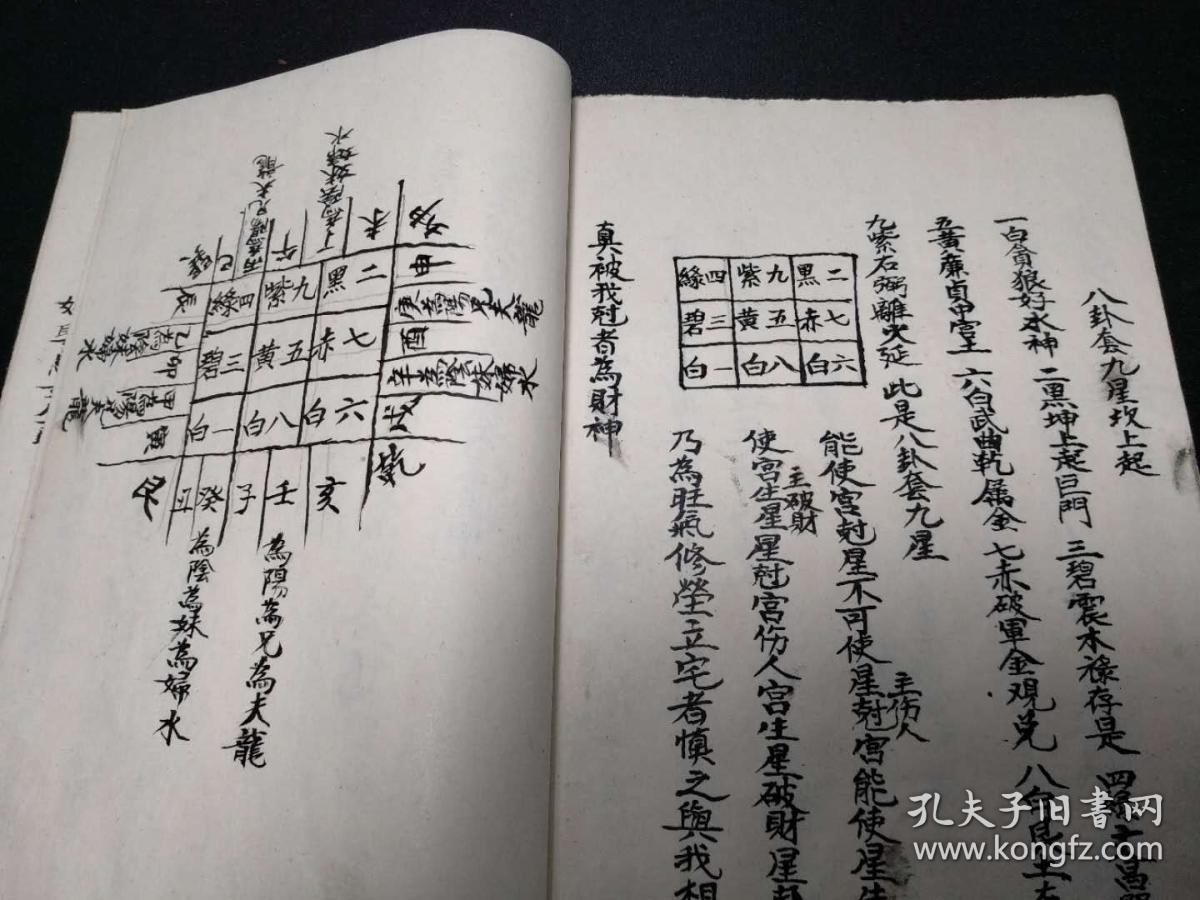 八卦套九星坎上起
一白貪狼好水神 二黑坤上起巨門 三碧震木祿存是
五黃廉貞中宮主 六白武曲乾属金 七赤破軍金覌兑
九紫右弼離火延 此是八卦套九星
二 九 四
黑 紫 綠
七 五 三
赤 黃 碧
六 八 一
白 白 白
能使宮尅星不可使星尅宮能使星生
主伤人
使宮生星星尅宮伤人宮生星破財星
主破財
乃為旺氣修塋立宅者慎之與我相
真被我尅者為財神
未 丁 午 丙 巳
丁為陰為妹為婦水
丙為陽為兄為夫龍
申
庚為陽為兄夫龍
酉
辛為陰妹婦水
戌
乾
二 九 四
黑 紫 綠
七 五 三
赤 黃 碧
六 八 一
白 白 白
辰
卯
甲
寅
艮
亥 壬 子 癸 丑
為陽為兄為夫龍
為陰為妹為婦水
孔夫子旧书网
www.kongfz.com